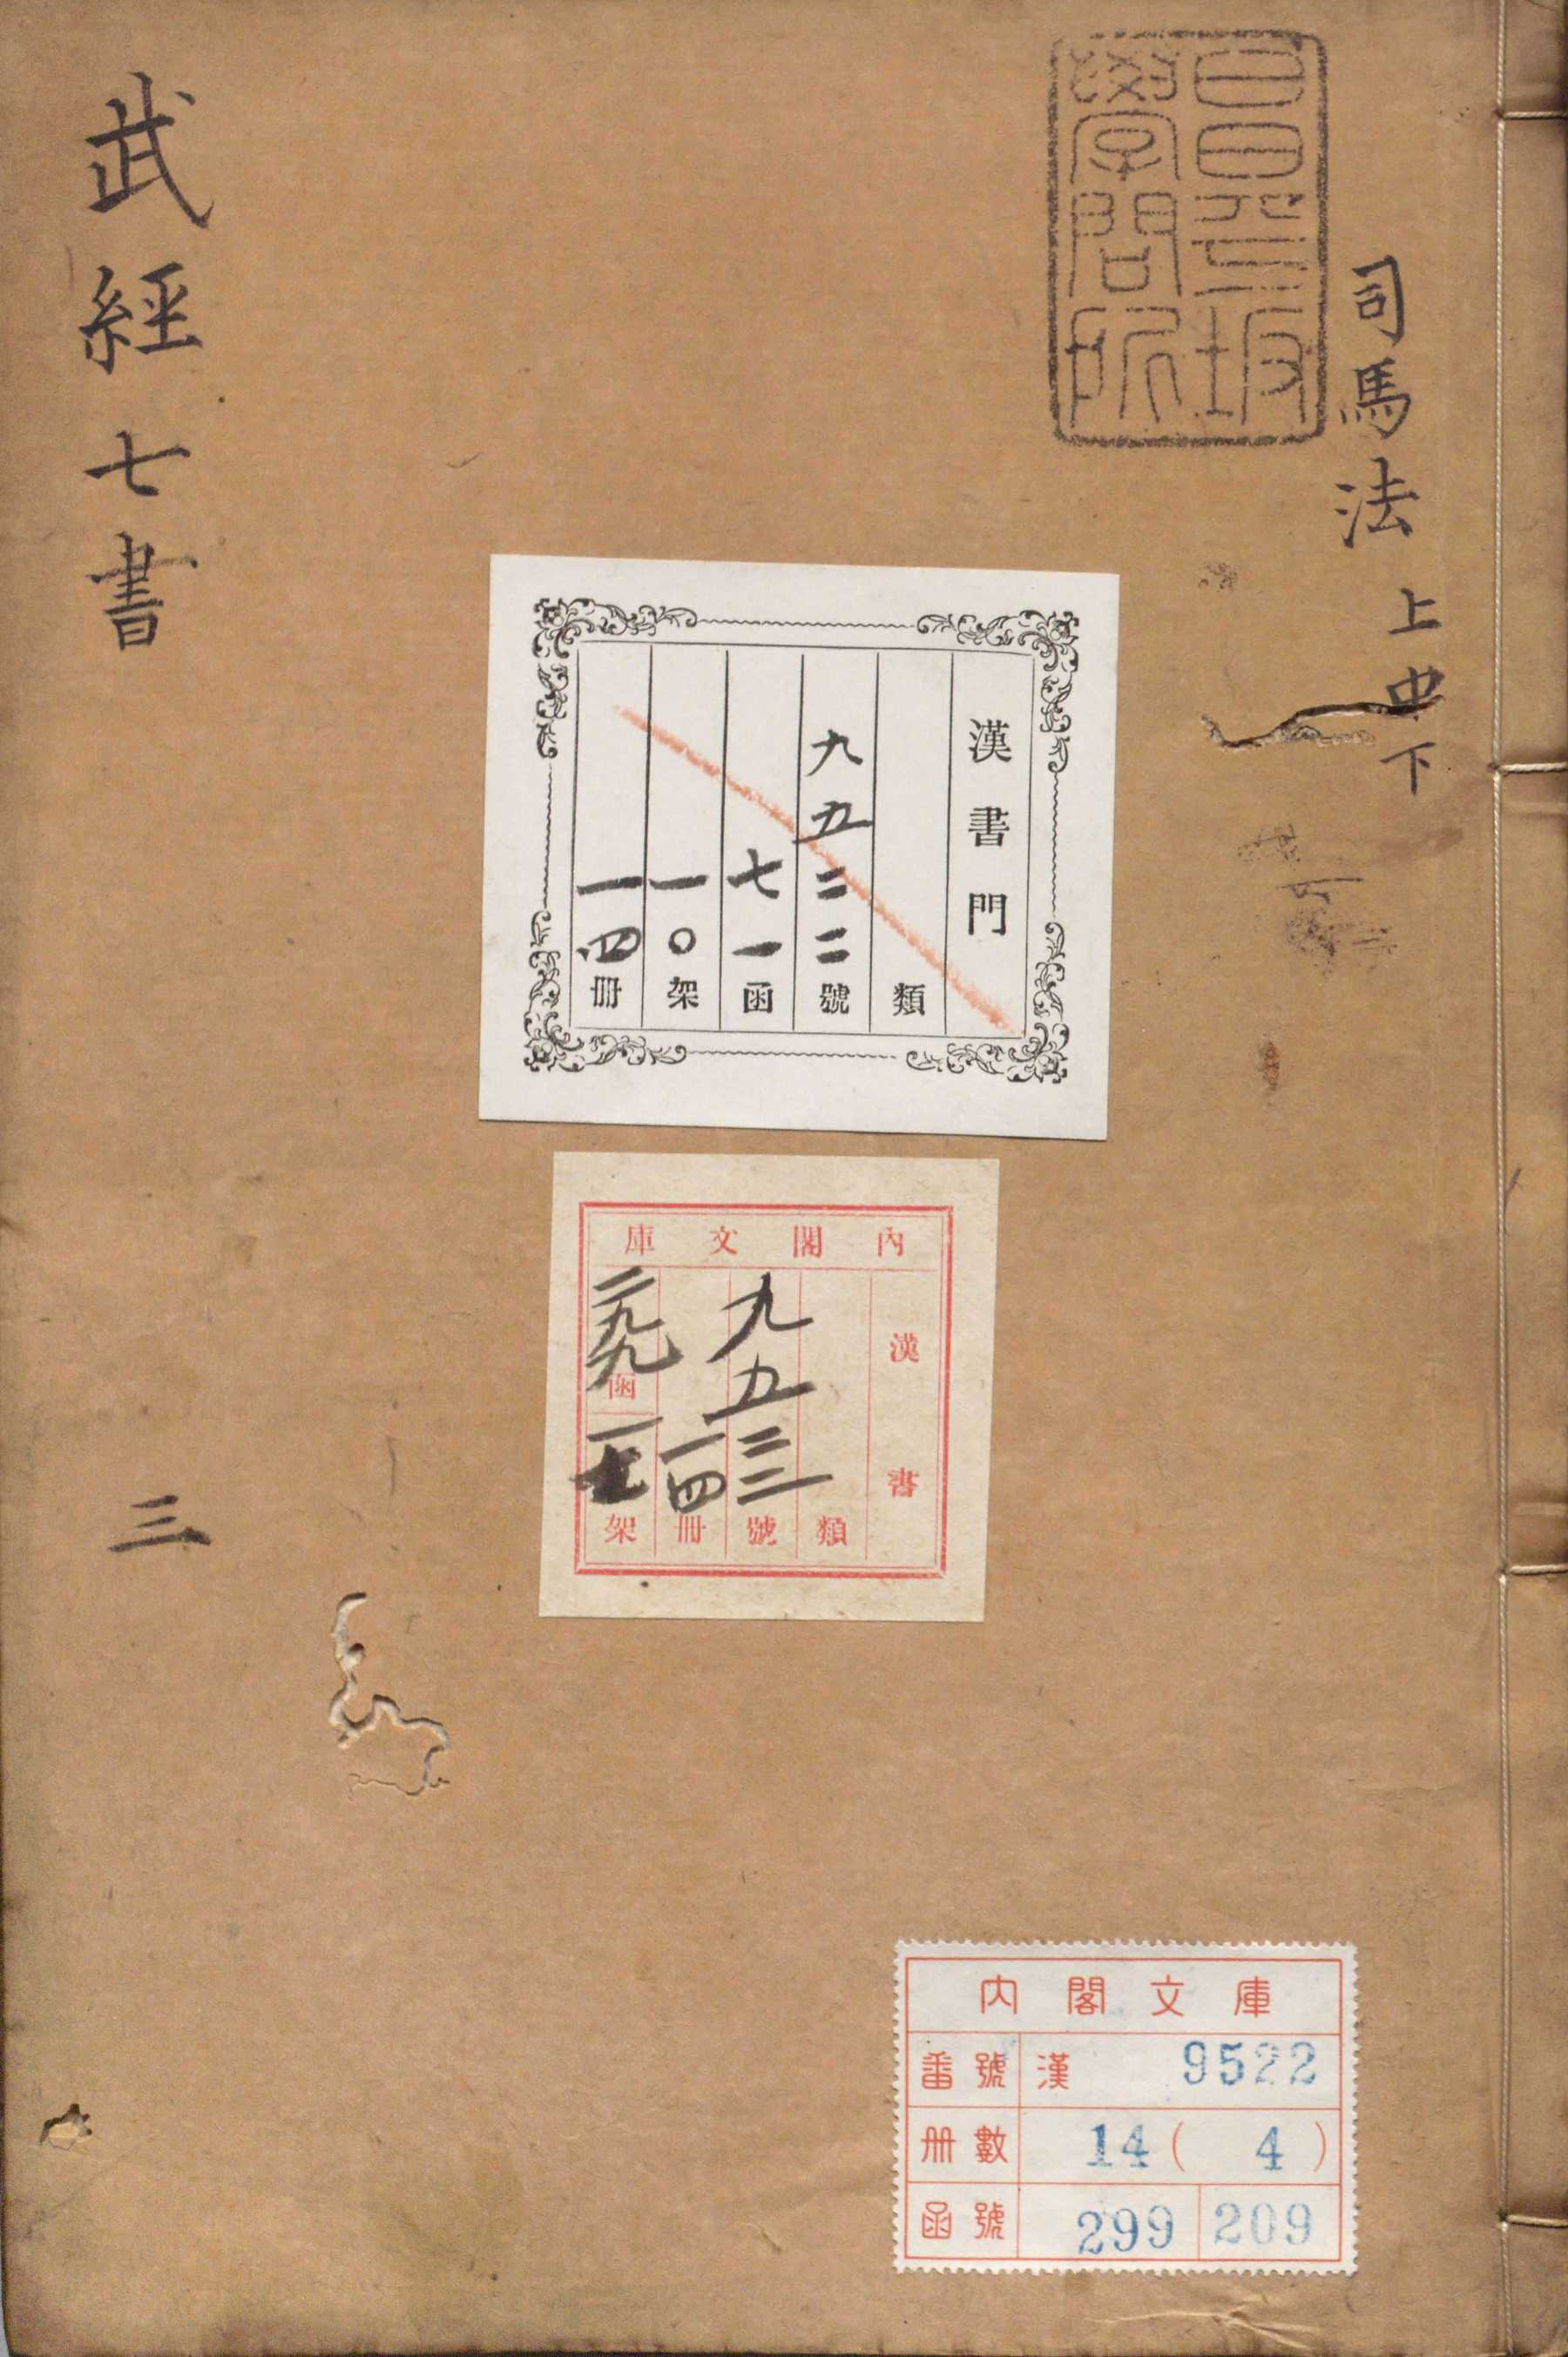 昌平坂
學問所
司馬法 上中下
武經七書
三
漢書門
類
九五二二號
七一函
一〇架
一四冊
內閣文庫
漢書
類
九五二二號
一四冊
二九九函
一架
內閣文庫
番號 漢 9522
冊數 14(4)
函號 299 209